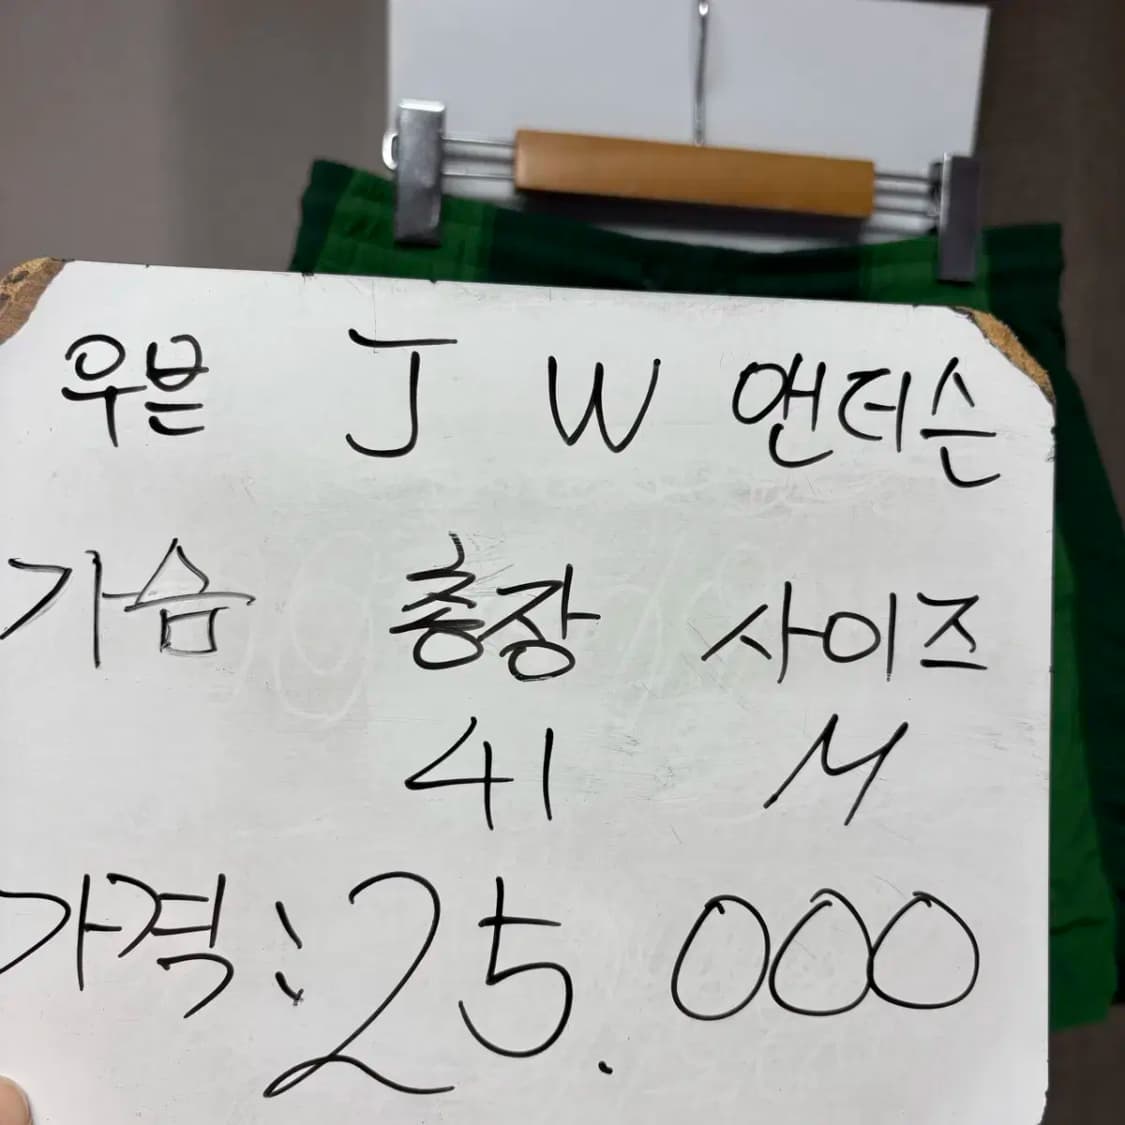 우븐 J W 앤더슨
가슴 총장 사이즈
41 M
가격: 25.000